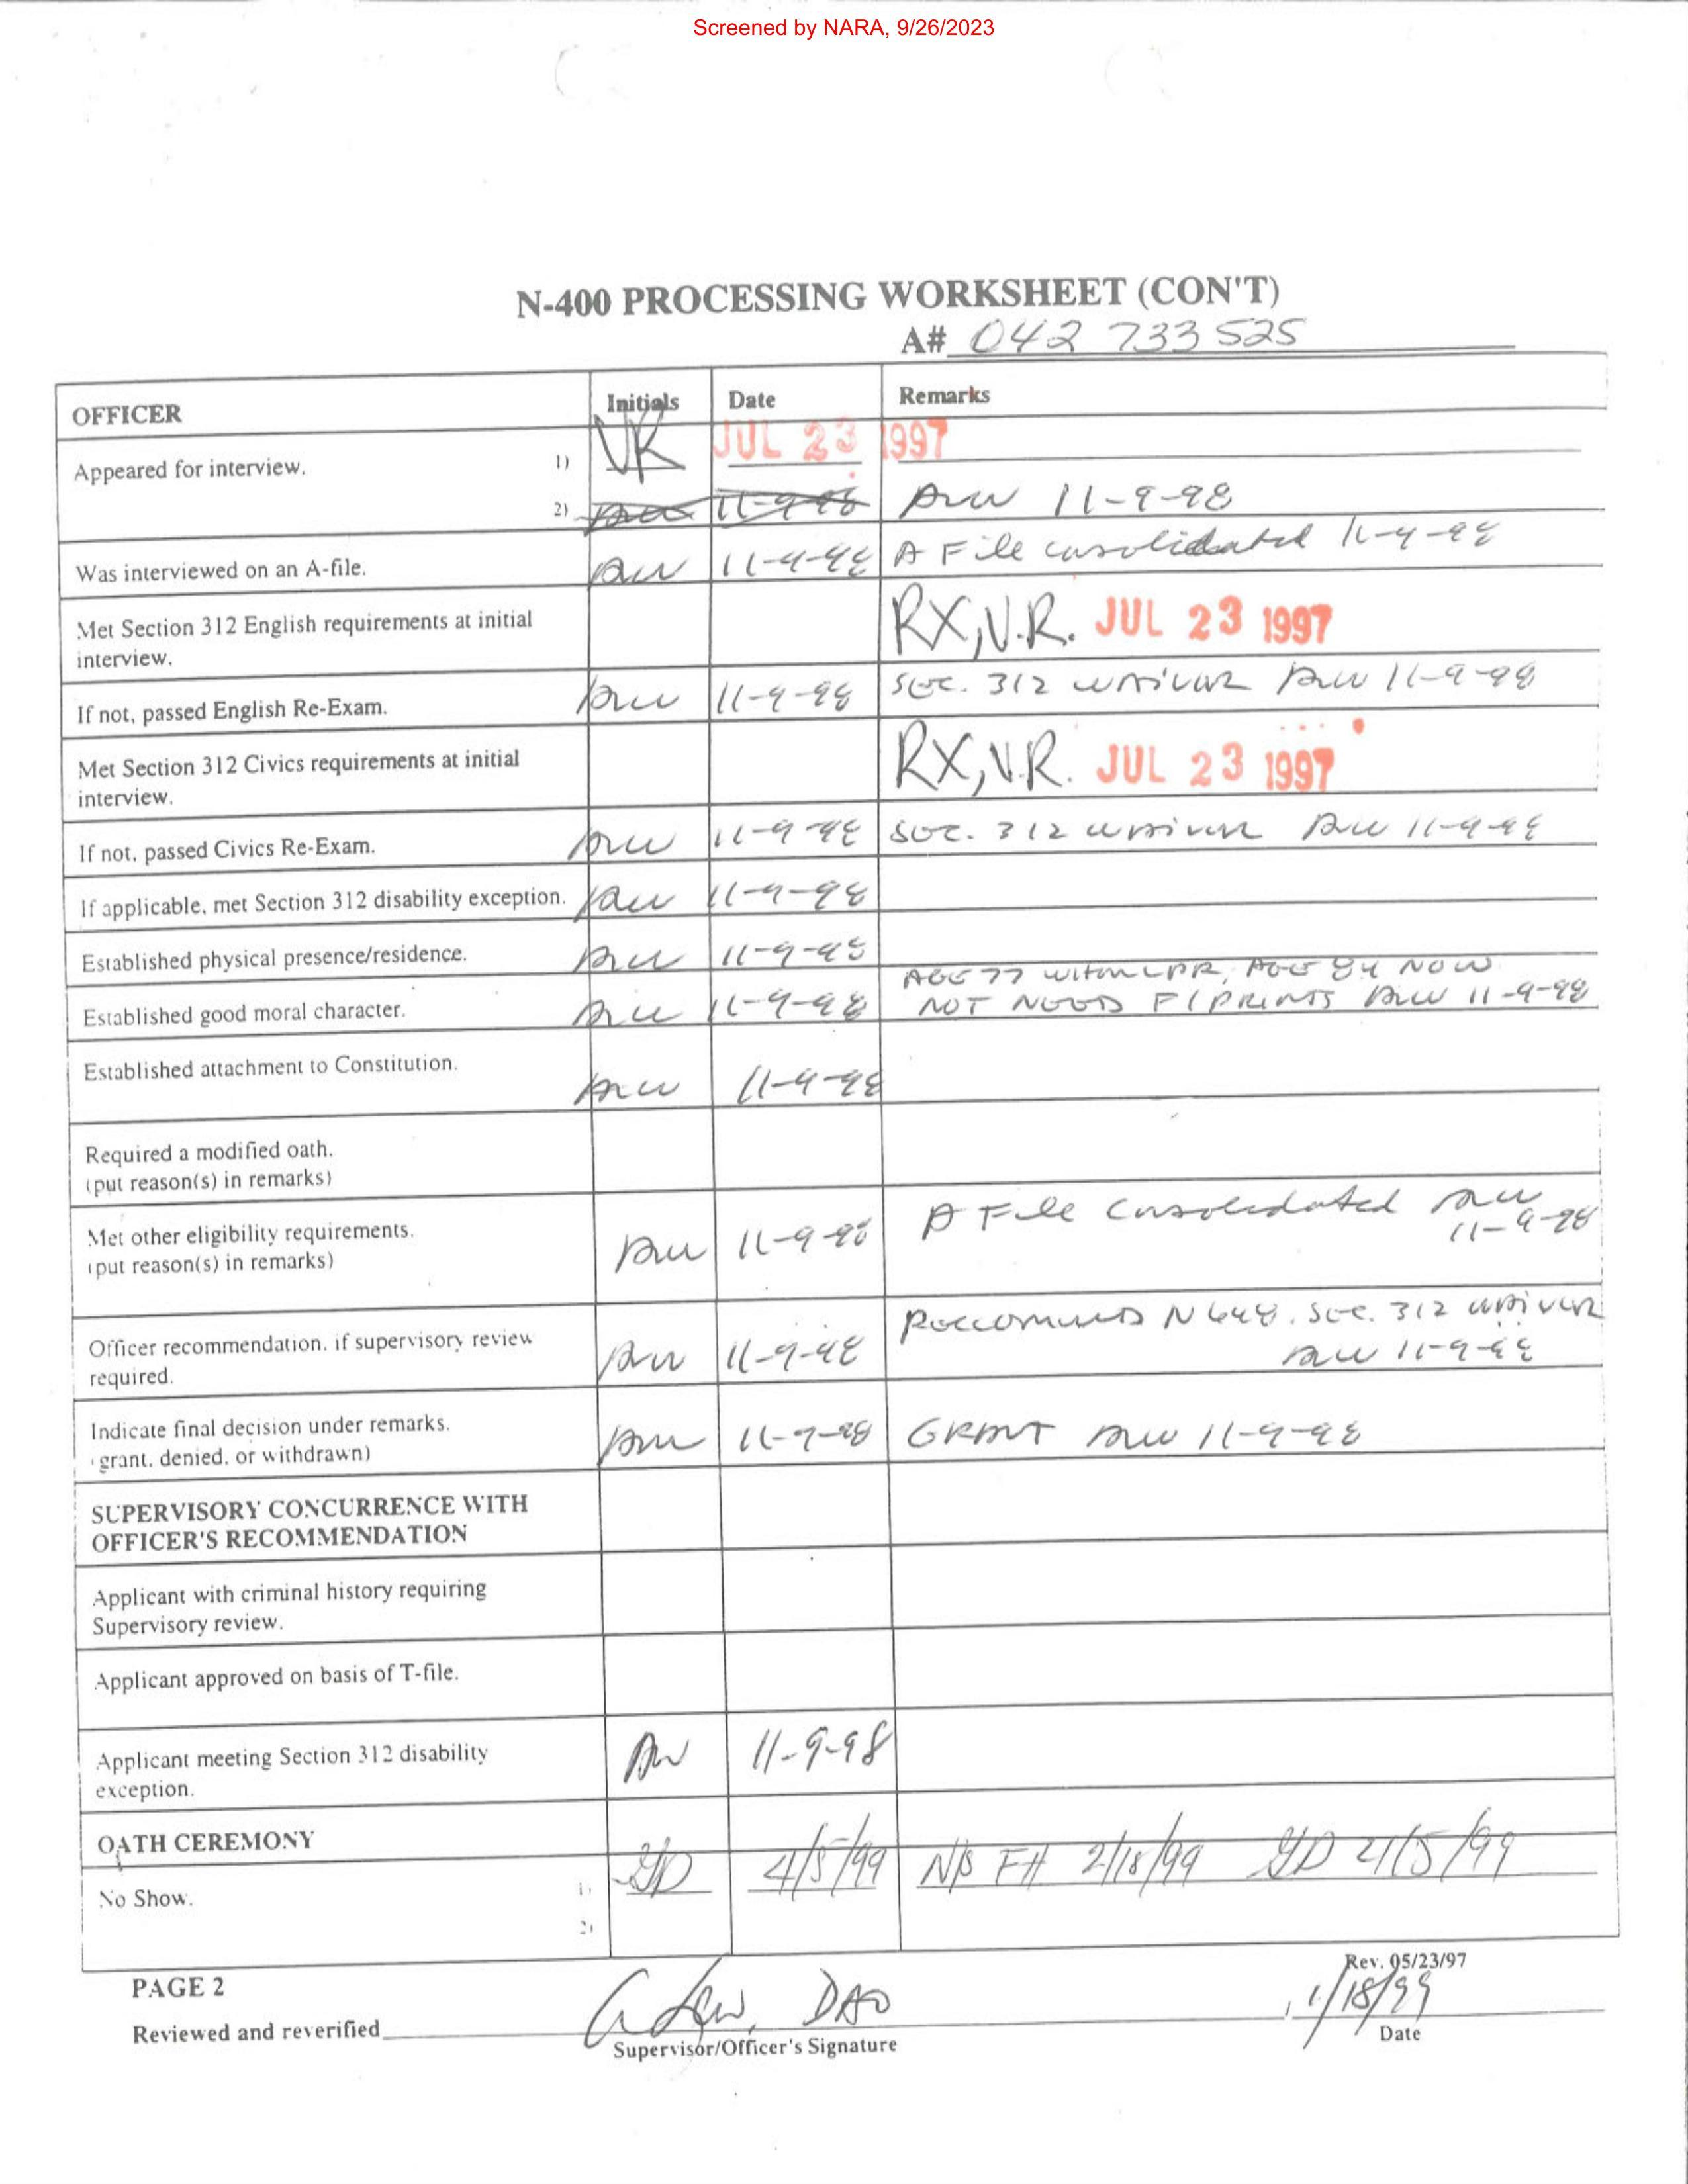 Screened by NARA, 9/26/2023
N-400 PROCESSING WORKSHEET (CON'T)
A# 042 733 525
OFFICER Initials Date Remarks
Appeared for interview. 1) VK JUL 23 1997
2) 11-9-98
Was interviewed on an A-file. 11-9-98 A File consolidated 11-9-98
Met Section 312 English requirements at initial
interview. RX, V.R. JUL 23 1997
If not, passed English Re-Exam. 11-9-98 SEC. 312 WAIVER 11-9-98
Met Section 312 Civics requirements at initial
interview. RX, V.R. JUL 23 1997
If not, passed Civics Re-Exam. 11-9-98 SEC. 312 WAIVER 11-9-98
If applicable, met Section 312 disability exception. 11-9-98
Established physical presence/residence. 11-9-98
AGE 77 LPR, AGE 84 NOW
Established good moral character. 11-9-98 NOT NEEDS F/PRINTS 11-9-98
Established attachment to Constitution. 11-9-98
Required a modified oath.
(put reason(s) in remarks)
Met other eligibility requirements. A File Consolidated
(put reason(s) in remarks) 11-9-98 11-9-98
Officer recommendation, if supervisory review RECCOMENDS N648. SEC. 312 WAIVER
required. 11-9-98 11-9-98
Indicate final decision under remarks.
(grant, denied, or withdrawn) 11-9-98 GRANT 11-9-98
SUPERVISORY CONCURRENCE WITH
OFFICER'S RECOMMENDATION
Applicant with criminal history requiring
Supervisory review.
Applicant approved on basis of T-file.
Applicant meeting Section 312 disability
exception. 11-9-98
OATH CEREMONY
No Show. 1) 4/5/99 N/S FH 2/18/99 4/5/99
2)
Rev. 05/23/97
PAGE 2
Reviewed and reverified DAO 1/18/99
Supervisor/Officer's Signature Date